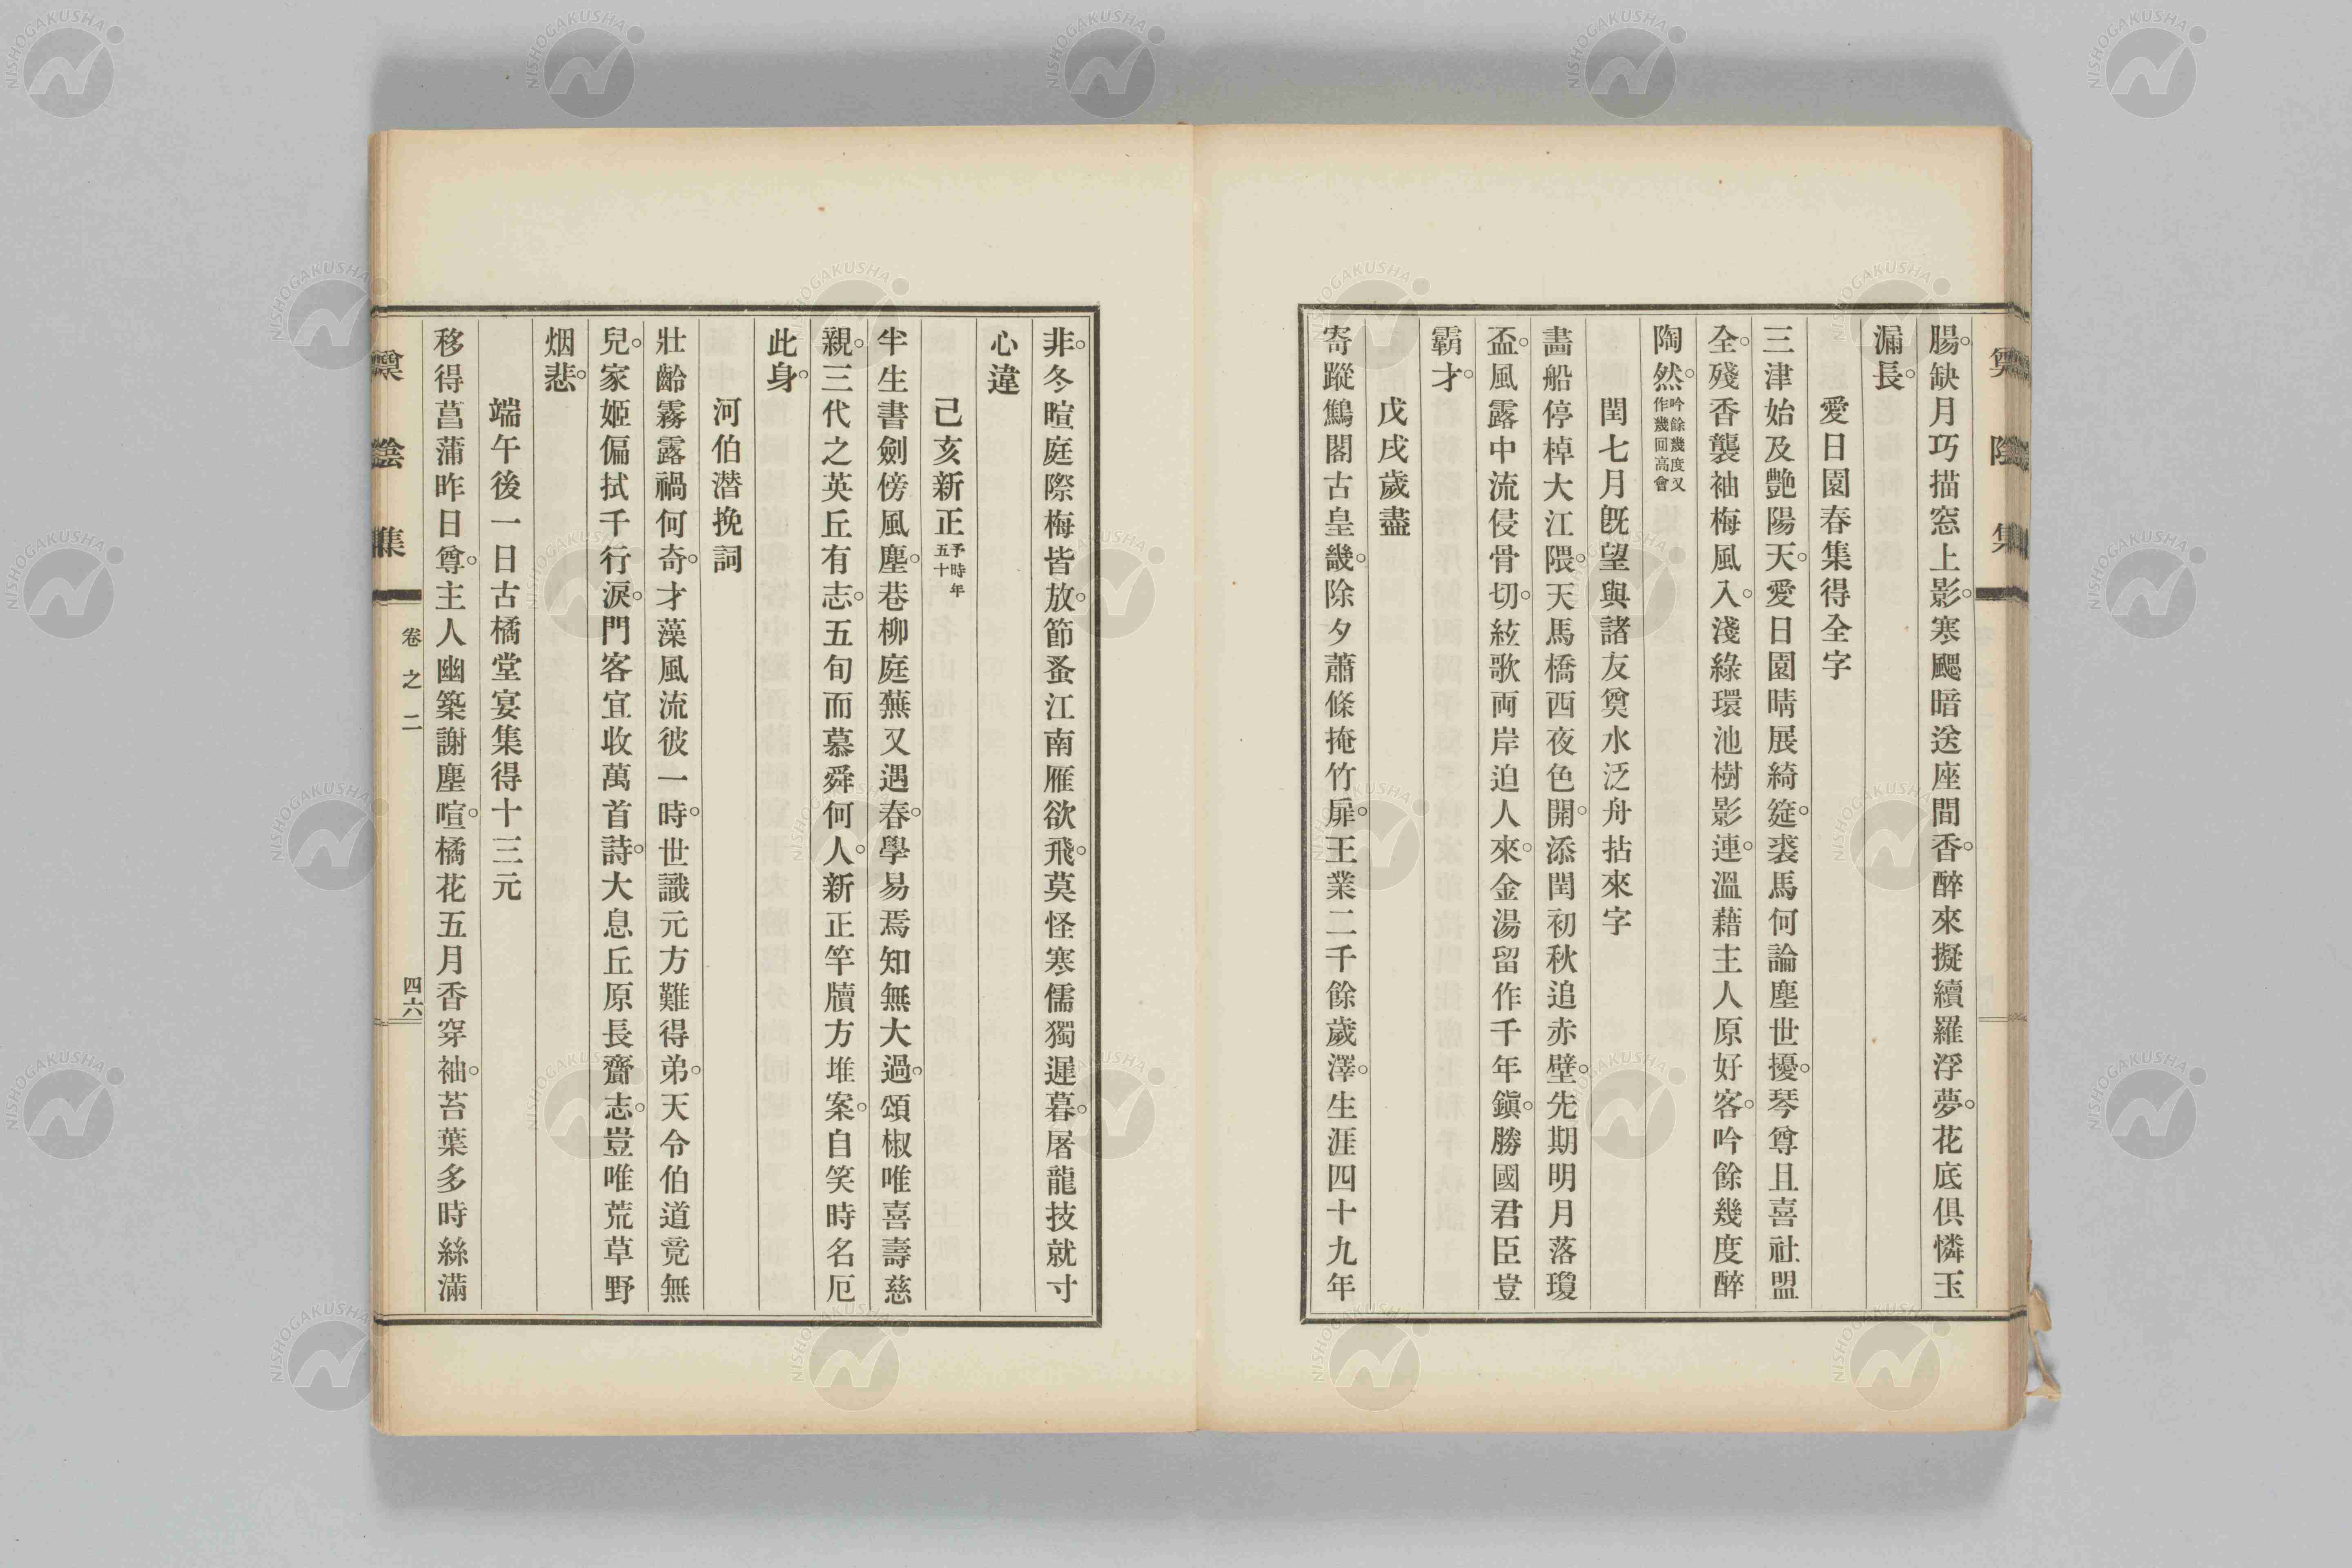 腸。缺月巧描窓上影。寒颸暗送座間香。醉來擬續羅浮夢。花底俱憐玉
漏長。
愛日園春集得全字
三津始及艶陽天。愛日園晴展綺筵。裘馬何論塵世擾。琴尊且喜社盟
全。殘香襲袖梅風入。淺綠環池樹影連。溫藉主人原好客。吟餘幾度醉
陶然。吟餘幾度又作幾回高會
閏七月旣望與諸友奠水泛舟拈來字
畵船停棹大江隈。天馬橋西夜色開。添閏初秋追赤壁。先期明月落瓊
盃。風露中流侵骨切。絃歌両岸迫人來。金湯留作千年鎭。勝國君臣豈
霸才。
戊戌歲盡
寄蹤鷦閣古皇畿。除夕蕭條掩竹扉。王業二千餘歲澤。生涯四十九年
非。冬暄庭際梅皆放。節蚤江南雁欲飛。莫怪寒儒獨遲暮。屠龍技就寸
心違
己亥新正予時年五十
半生書劍傍風塵。巷柳庭蕪又遇春。學易焉知無大過。頌椒唯喜壽慈
親。三代之英丘有志。五旬而慕舜何人。新正竿牘方堆案。自笑時名厄
此身。
河伯潜挽詞
壯齡霧露禍何奇。才藻風流彼一時。世識元方難得弟。天令伯道竟無
兒。家姬偏拭千行淚。門客宜收萬首詩。大息丘原長齎志。豈唯荒草野
烟悲。
端午後一日古橘堂宴集得十三元
移得菖蒲昨日尊。主人幽築謝塵喧。橘花五月香穿袖。苔葉多時絲滿
卷之二
四六
NISHOGAKUSHA